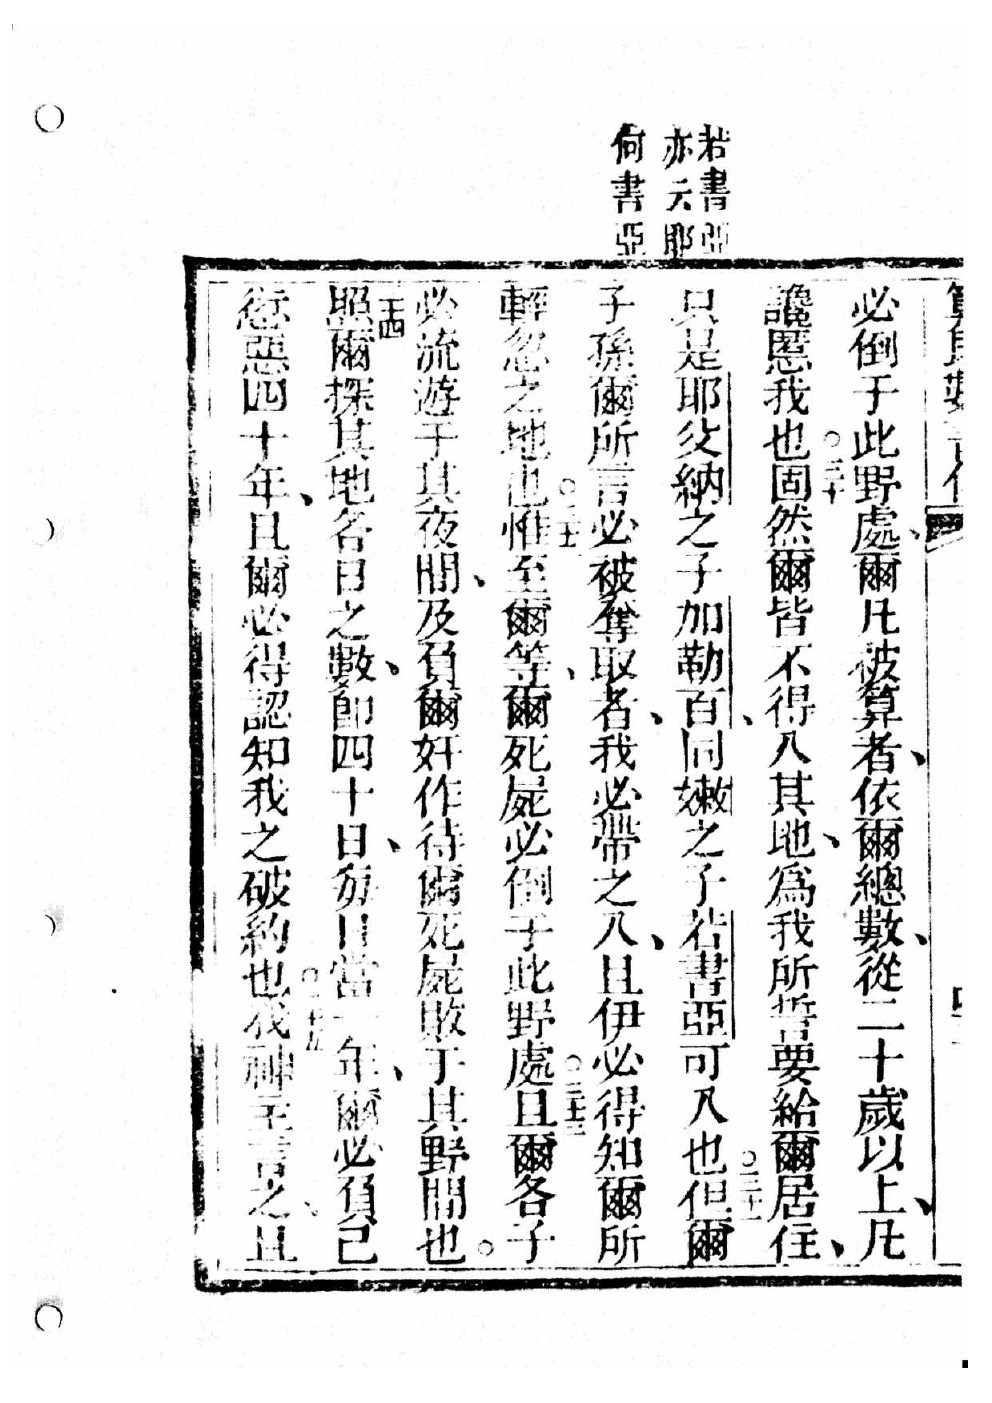 若書亞
亦云耶
何書亞
必倒于此野處、爾凡被算者、依爾總數、從二十歲以上、凡
讒慝我也○三十固然爾皆不得入其地、爲我所誓要給爾居住、
只是耶父納之子加勒、百同嫩之子若書亞可入也○三十一但爾
子孫爾所言必被奪取者、我必帶之入、且伊必得知爾所
輕忽之地也○三十二惟至爾等、爾死屍必倒于此野處○三十三且爾各子
必流游于其夜間、及負爾奸作待爾死屍敗于其野間也○
三十四照爾探其地各日之數、即四十日、每日當一年、爾必負己
愆惡四十年、且爾必得認知我之破約也○三十五我神主言之、且